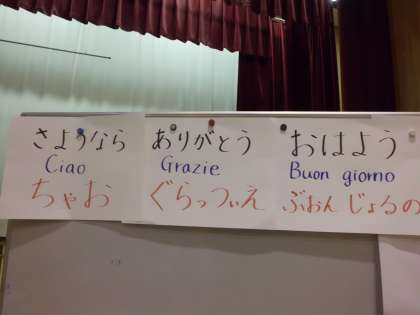 さようなら
Ciao
ちゃお
ありがとう
Grazie
ぐらっつぃえ
おはよう
Buon giorno
ぶおんじょるの